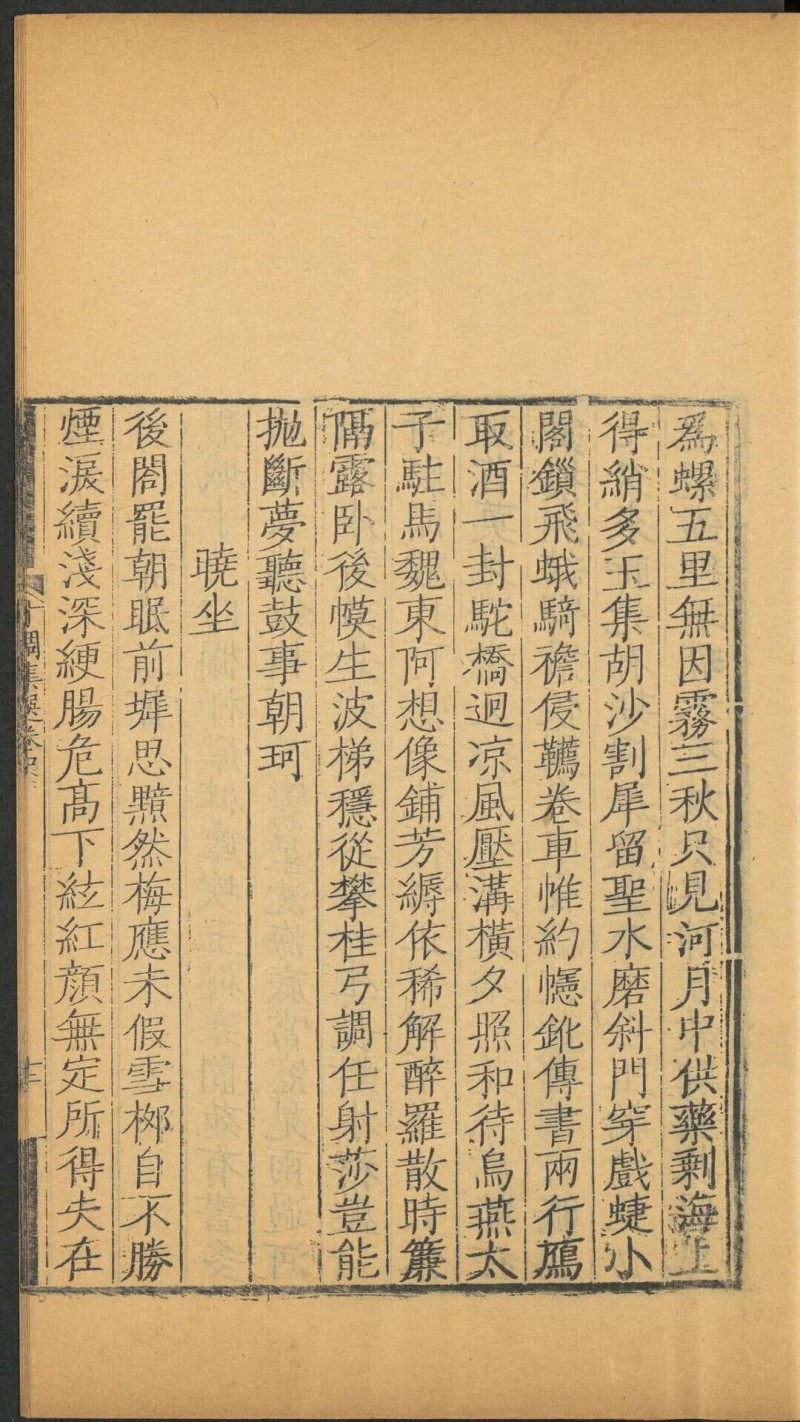 為螺五里無因霧三秋只見河月中供藥剩海上
得綃多玉集胡沙割犀留聖水磨斜門穿戲蜨小
閣鏁飛蛾騎襜侵鞴卷車帷約幰鈋傳書兩行鴈
取酒一封駝橋迥凉風壓溝橫夕照和待烏燕太
子駐馬魏東阿想像鋪芳縟依稀解醉羅散時簾
隔露卧後幙生波梯穩從攀桂弓調任射莎豈能
拋斷夢聽鼓事朝珂
曉坐
後閤罷朝眠前墀思黯然梅應未假雪栁自不勝
煙淚續淺深綆腸危髙下絃紅顔無定所得失在
才調集